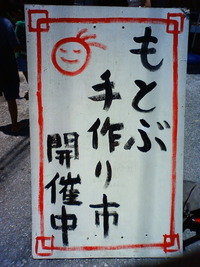 もとぶ
手作り市
開催中